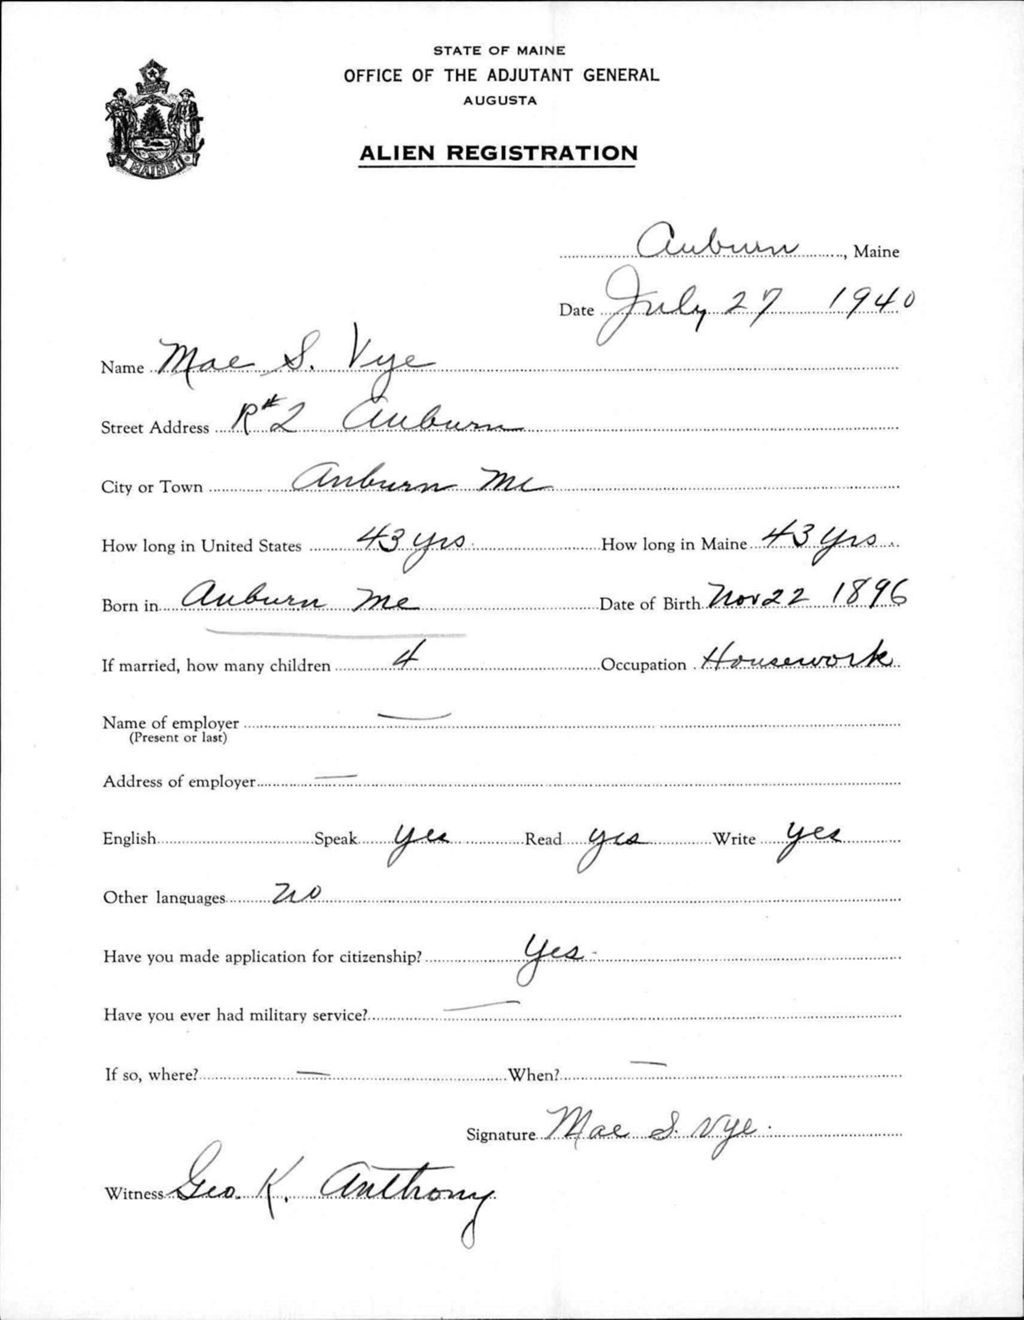 STATE OF MAINE
OFFICE OF THE ADJUTANT GENERAL
AUGUSTA
ALIEN REGISTRATION
MAINE
Auburn, Maine
Date July 27 1940
Name Mae S. Vye
Street Address R#2 Auburn
City or Town Auburn Me
How long in United States 43 yrs. How long in Maine 43 yrs
Born in Auburn Me Date of Birth Nov 22 1896
If married, how many children 4 Occupation Housework
Name of employer —
(Present or last)
Address of employer —
English Speak yes Read yes Write yes
Other languages no
Have you made application for citizenship? Yes.
Have you ever had military service? —
If so, where? — When? —
Signature Mae S. Vye.
Witness Geo. K. Anthony